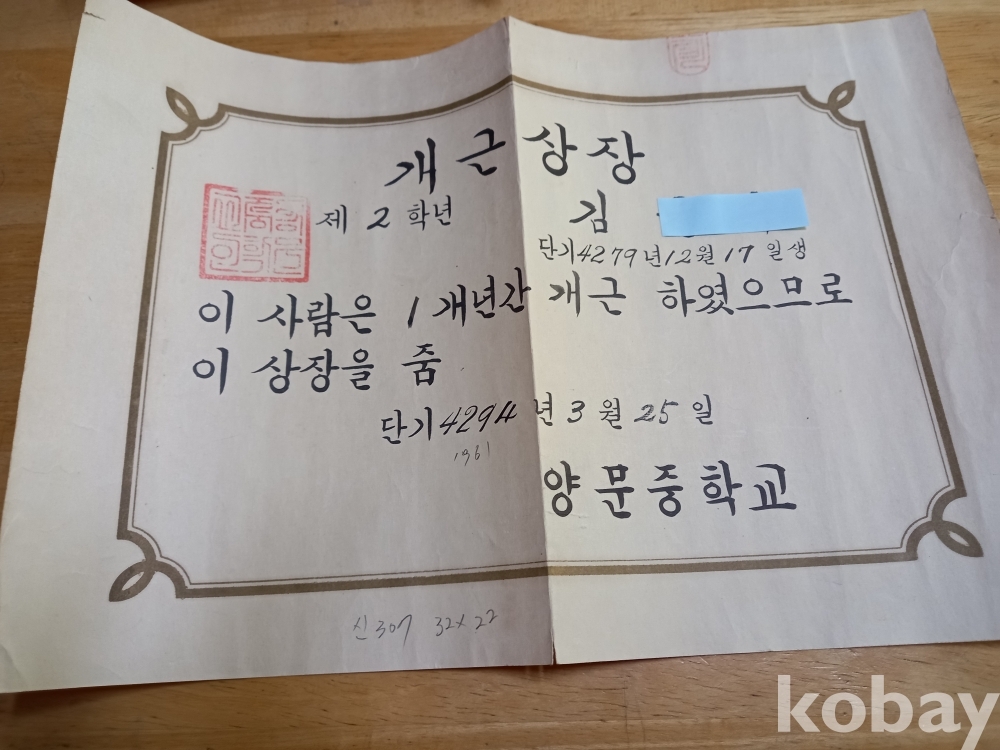 개근상장
제 2 학년
김
단기 4279년 12월 17일생
이 사람은 1 개년간 개근 하였으므로
이 상장을 줌
단기 4294년 3월 25일
1961
양문중학교
신307 32x22
kobay